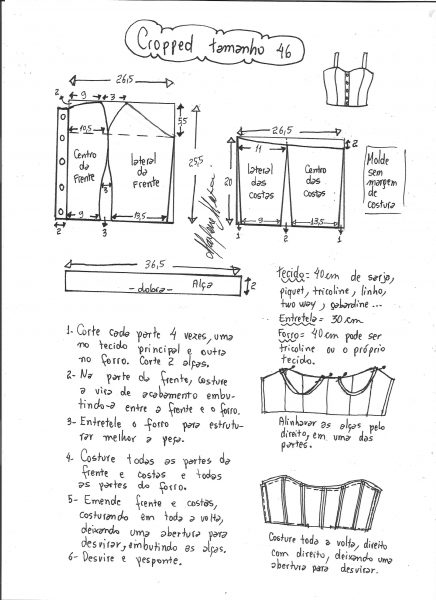 Cropped tamanho 46
26,5
2
9
3
5,5
10,5
Centro
da
Frente
lateral
da
Frente
3
25,5
13,5
2
3
26,5
11
2
20
lateral
das
costas
Centro
das
costas
9
13,5
1
2
1
Molde
sem
margem
de
costura
36,5
- dobra -
Alça
2
Tecido = 40 cm de sarja,
piquet, tricoline, linho,
two way, gabardine...
Entretela = 30 cm
Forro = 40 cm pode ser
tricoline ou o próprio
tecido.
1- Corte cada parte 4 vezes, uma
no tecido principal e outra
no forro. Corte 2 alças.
2- Na parte da frente, costure
a vira de acabamento embu-
tindo-a entre a frente e o forro.
3- Entretele o forro para estrutu-
rar melhor a peça.
4- Costure todas as partes da
frente e costas e todas
as partes do forro.
5- Emende frente e costas,
costurando em toda a volta,
deixando uma abertura para
desvirar, embutindo as alças.
6- Desvire e pesponte.
Alinhavar as alças pelo
direito, em uma das
partes.
Costure toda a volta, direito
com direito, deixando uma
abertura para desvirar.